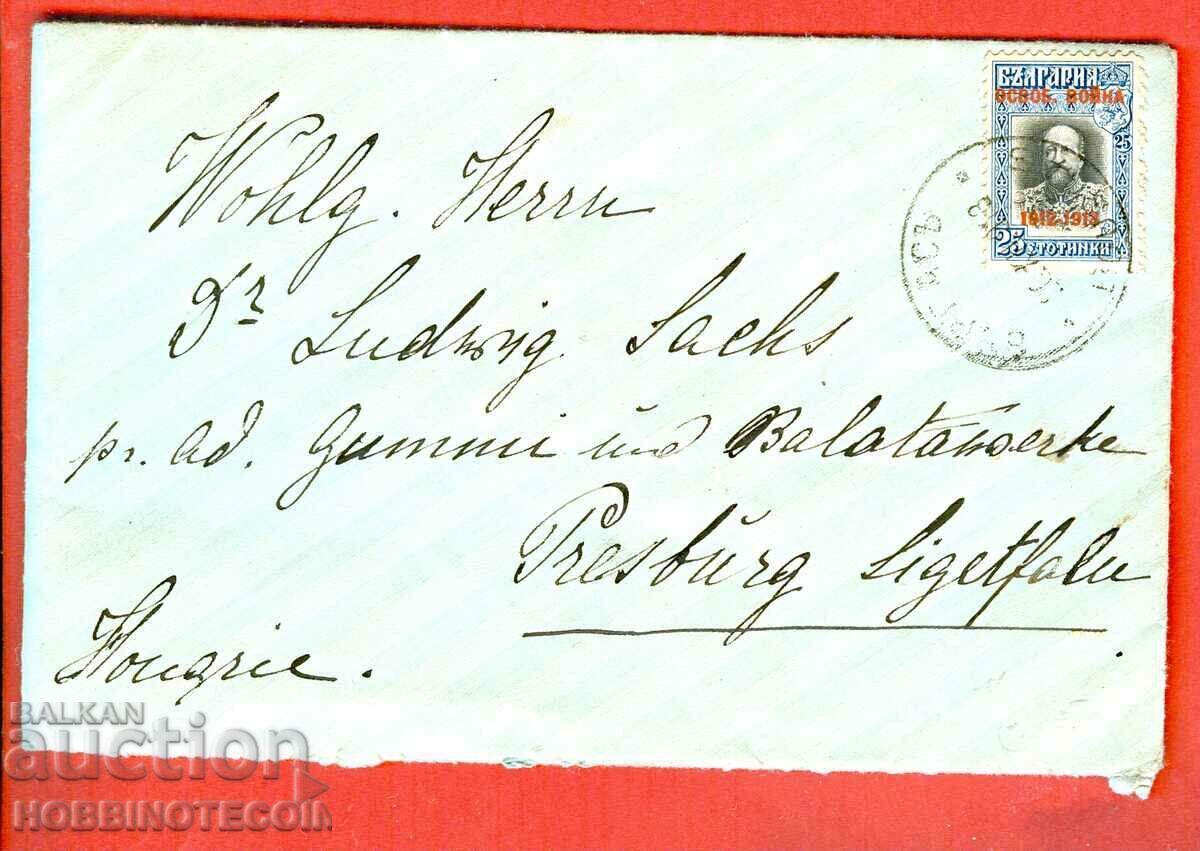 БЪЛГАРИЯ
ОСВОБ. ВОЙНА
25
1912-1913
25 СТОТИНКИ
Wohlg. Herrn
Dr Ludwig Sachs
pr. Ad. Gummi und Balatawerke
Presburg Ligetfalu
Hongrie.
BALKAN
auction
HOBBINOTECOIN